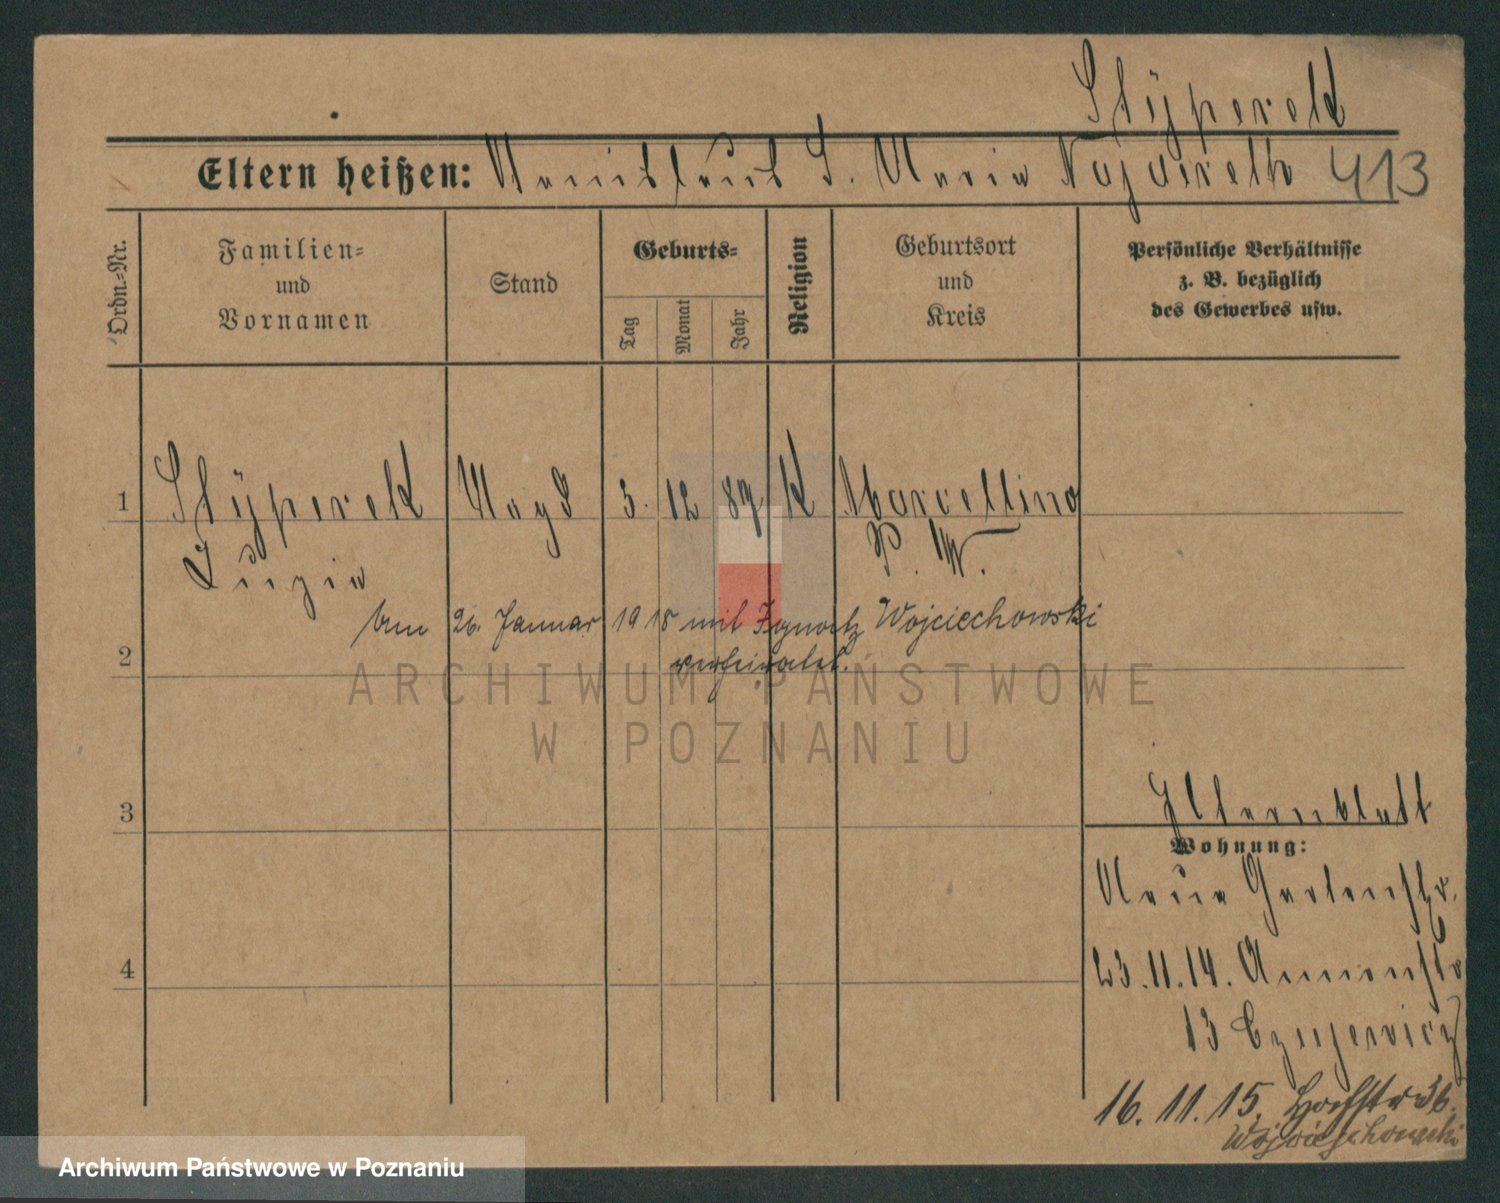 Styperek
Eltern heißen: Stanislaus S. Maria 413
Ordn.-Nr.
Familien-
und
Vornamen
Stand
Geburts-
Tag
Monat
Jahr
Religion
Geburtsort
und
Kreis
Persönliche Verhältnisse
z. B. bezüglich
des Gewerbes usw.
1 Styperek Magd 3. 12 87 K Marcellino
P. W.
Luzia
Am 26. Januar 1918 mit Ignatz Wojciechowski
2 verheiratet.
ARCHIWUM PAŃSTWOWE
W POZNANIU
3 Elternblatt
Wohnung:
Neue Gartenstr.
4 23.11.14.
13
16. 11. 15. 36.
Wojciechowski
Archiwum Państwowe w Poznaniu